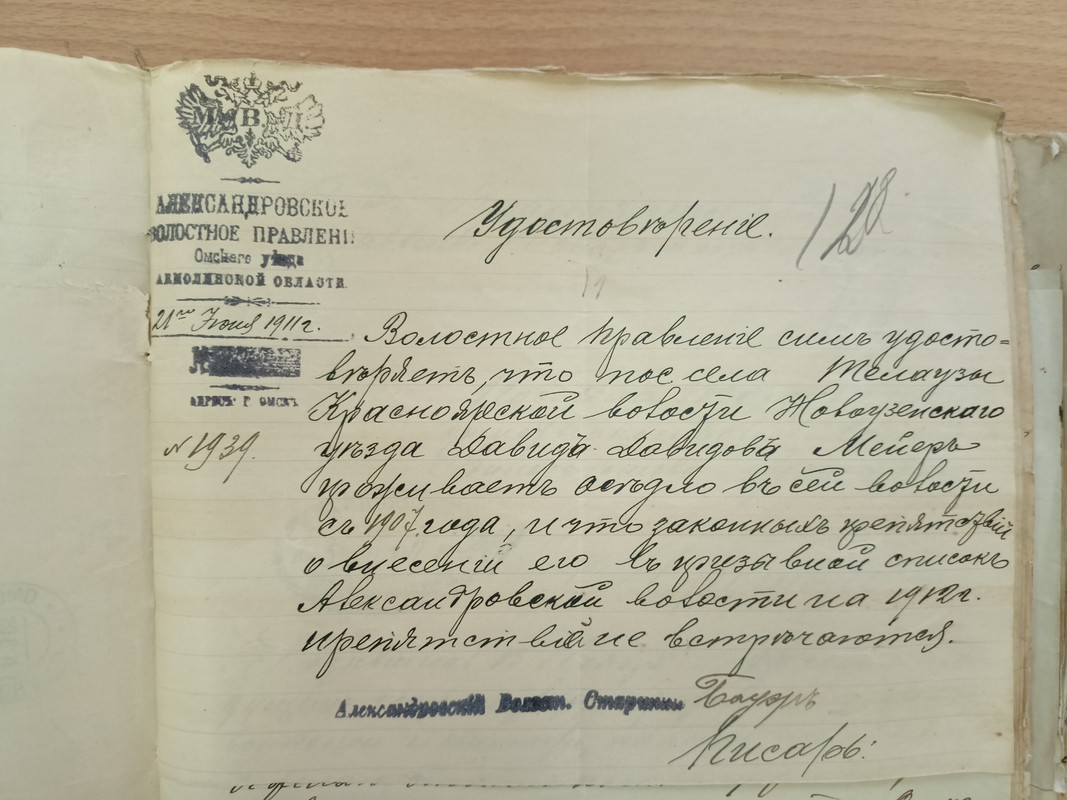 М. В. Д.
АЛЕКСАНДРОВСКОЕ
ВОЛОСТНОЕ ПРАВЛЕНІЕ
Омскаго уѣзда
АКМОЛИНСКОЙ ОБЛАСТИ.
21го Іюня 1911 г.
АДРЕСЪ: Г. ОМСКЪ
№ 1939.
Удостовѣреніе.
128
Волостное правленіе симъ удосто=
вѣряетъ, что пос села Телаузы
Красноярской волости Новоузенскаго
уѣзда Давидъ Давидовъ Мейеръ
проживаетъ осѣдло въ сей волости
съ 1907 года, и что законныхъ препятствій
о внесеніи его въ призывной списокъ
Александровской волости на 1912 г.
препятствій не встрѣчаются.
Александровскій Волост. Старшина Бауэръ
Писарь: